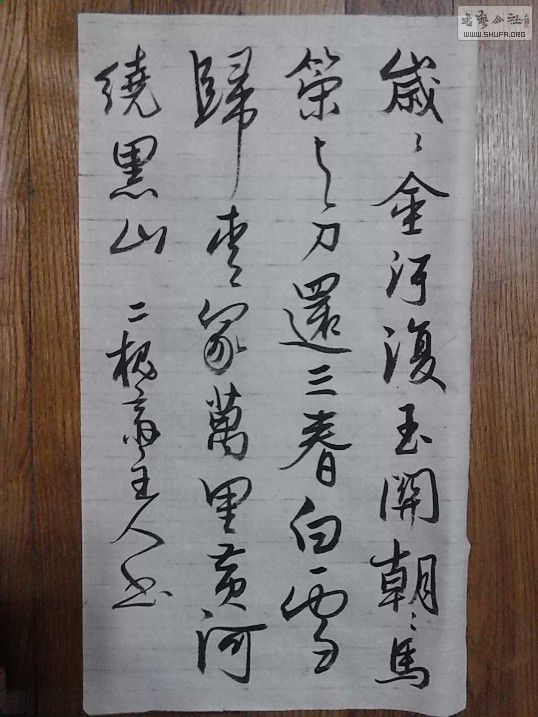 歲〻金河復玉關朝〻馬
策与刀還三春白雪
歸青冢萬里黄河
繞黑山 二槐斋主人书
書藝公社
WWW.SHUFA.ORG